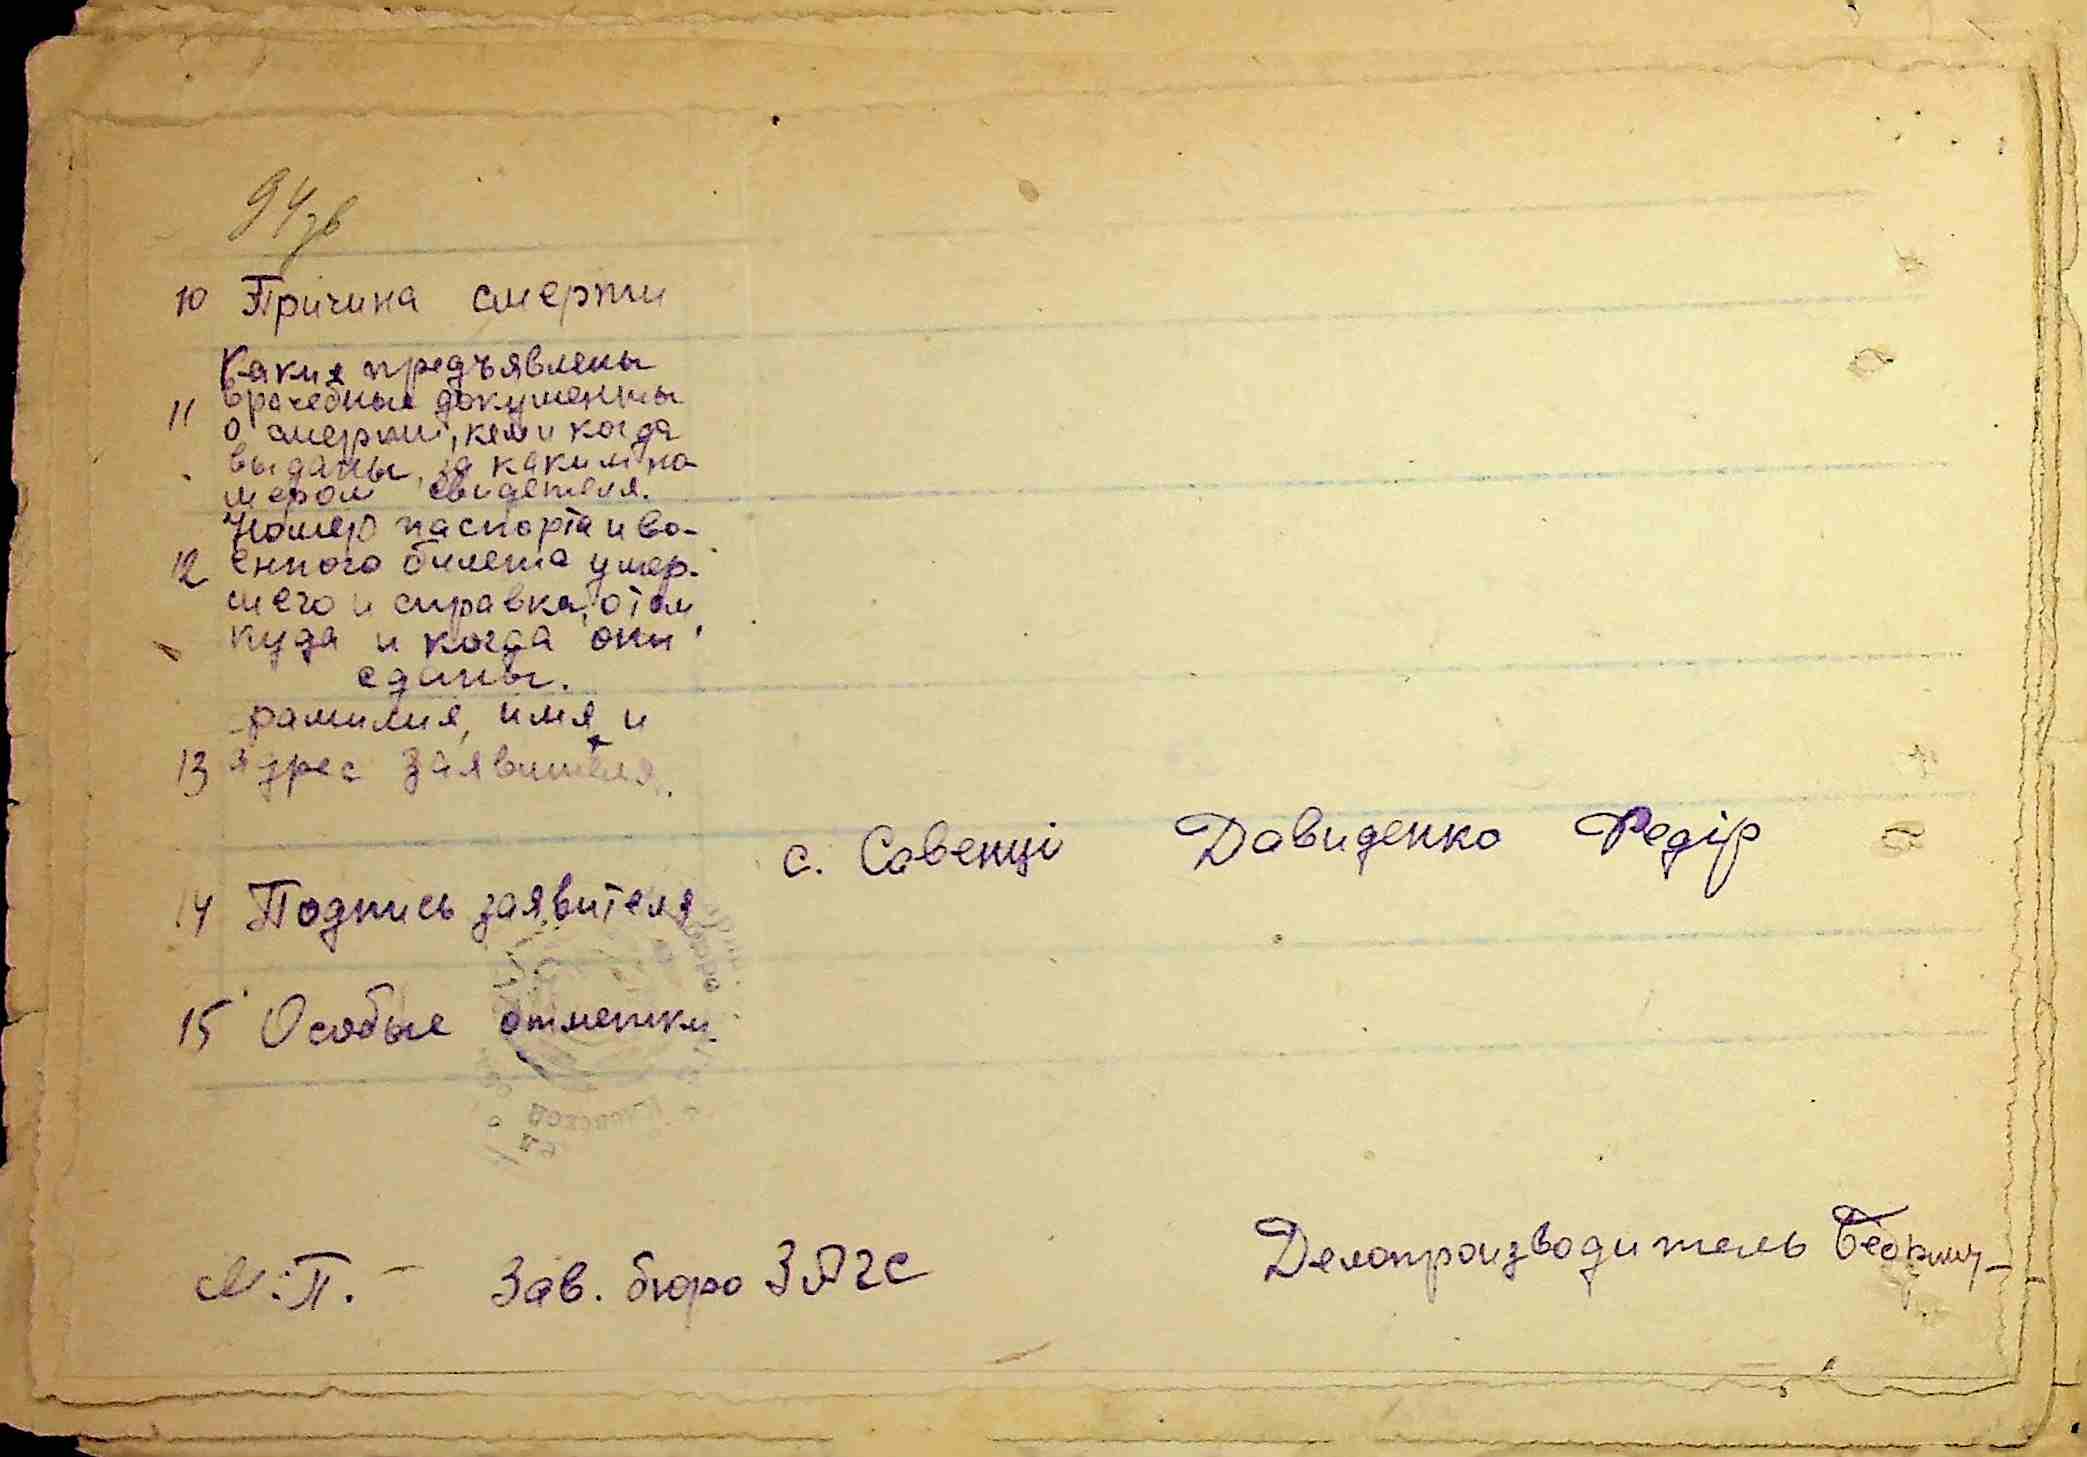 94зв
10 Причина смерти
Какие предъявлены
11 врачебные документы
о смерти, кем и когда
выданы, за каким но-
мером свидетеля.
Номер паспорта и во-
12 енного билета умер-
шего и справка, о том,
куда и когда они
сданы.
фамилия, имя и
13 адрес заявителя.
с. Савенці Давиденко Федір
14 Подпись заявителя
15 Особые отметки.
М.П. – Зав. бюро ЗАГС
Делопроизводитель